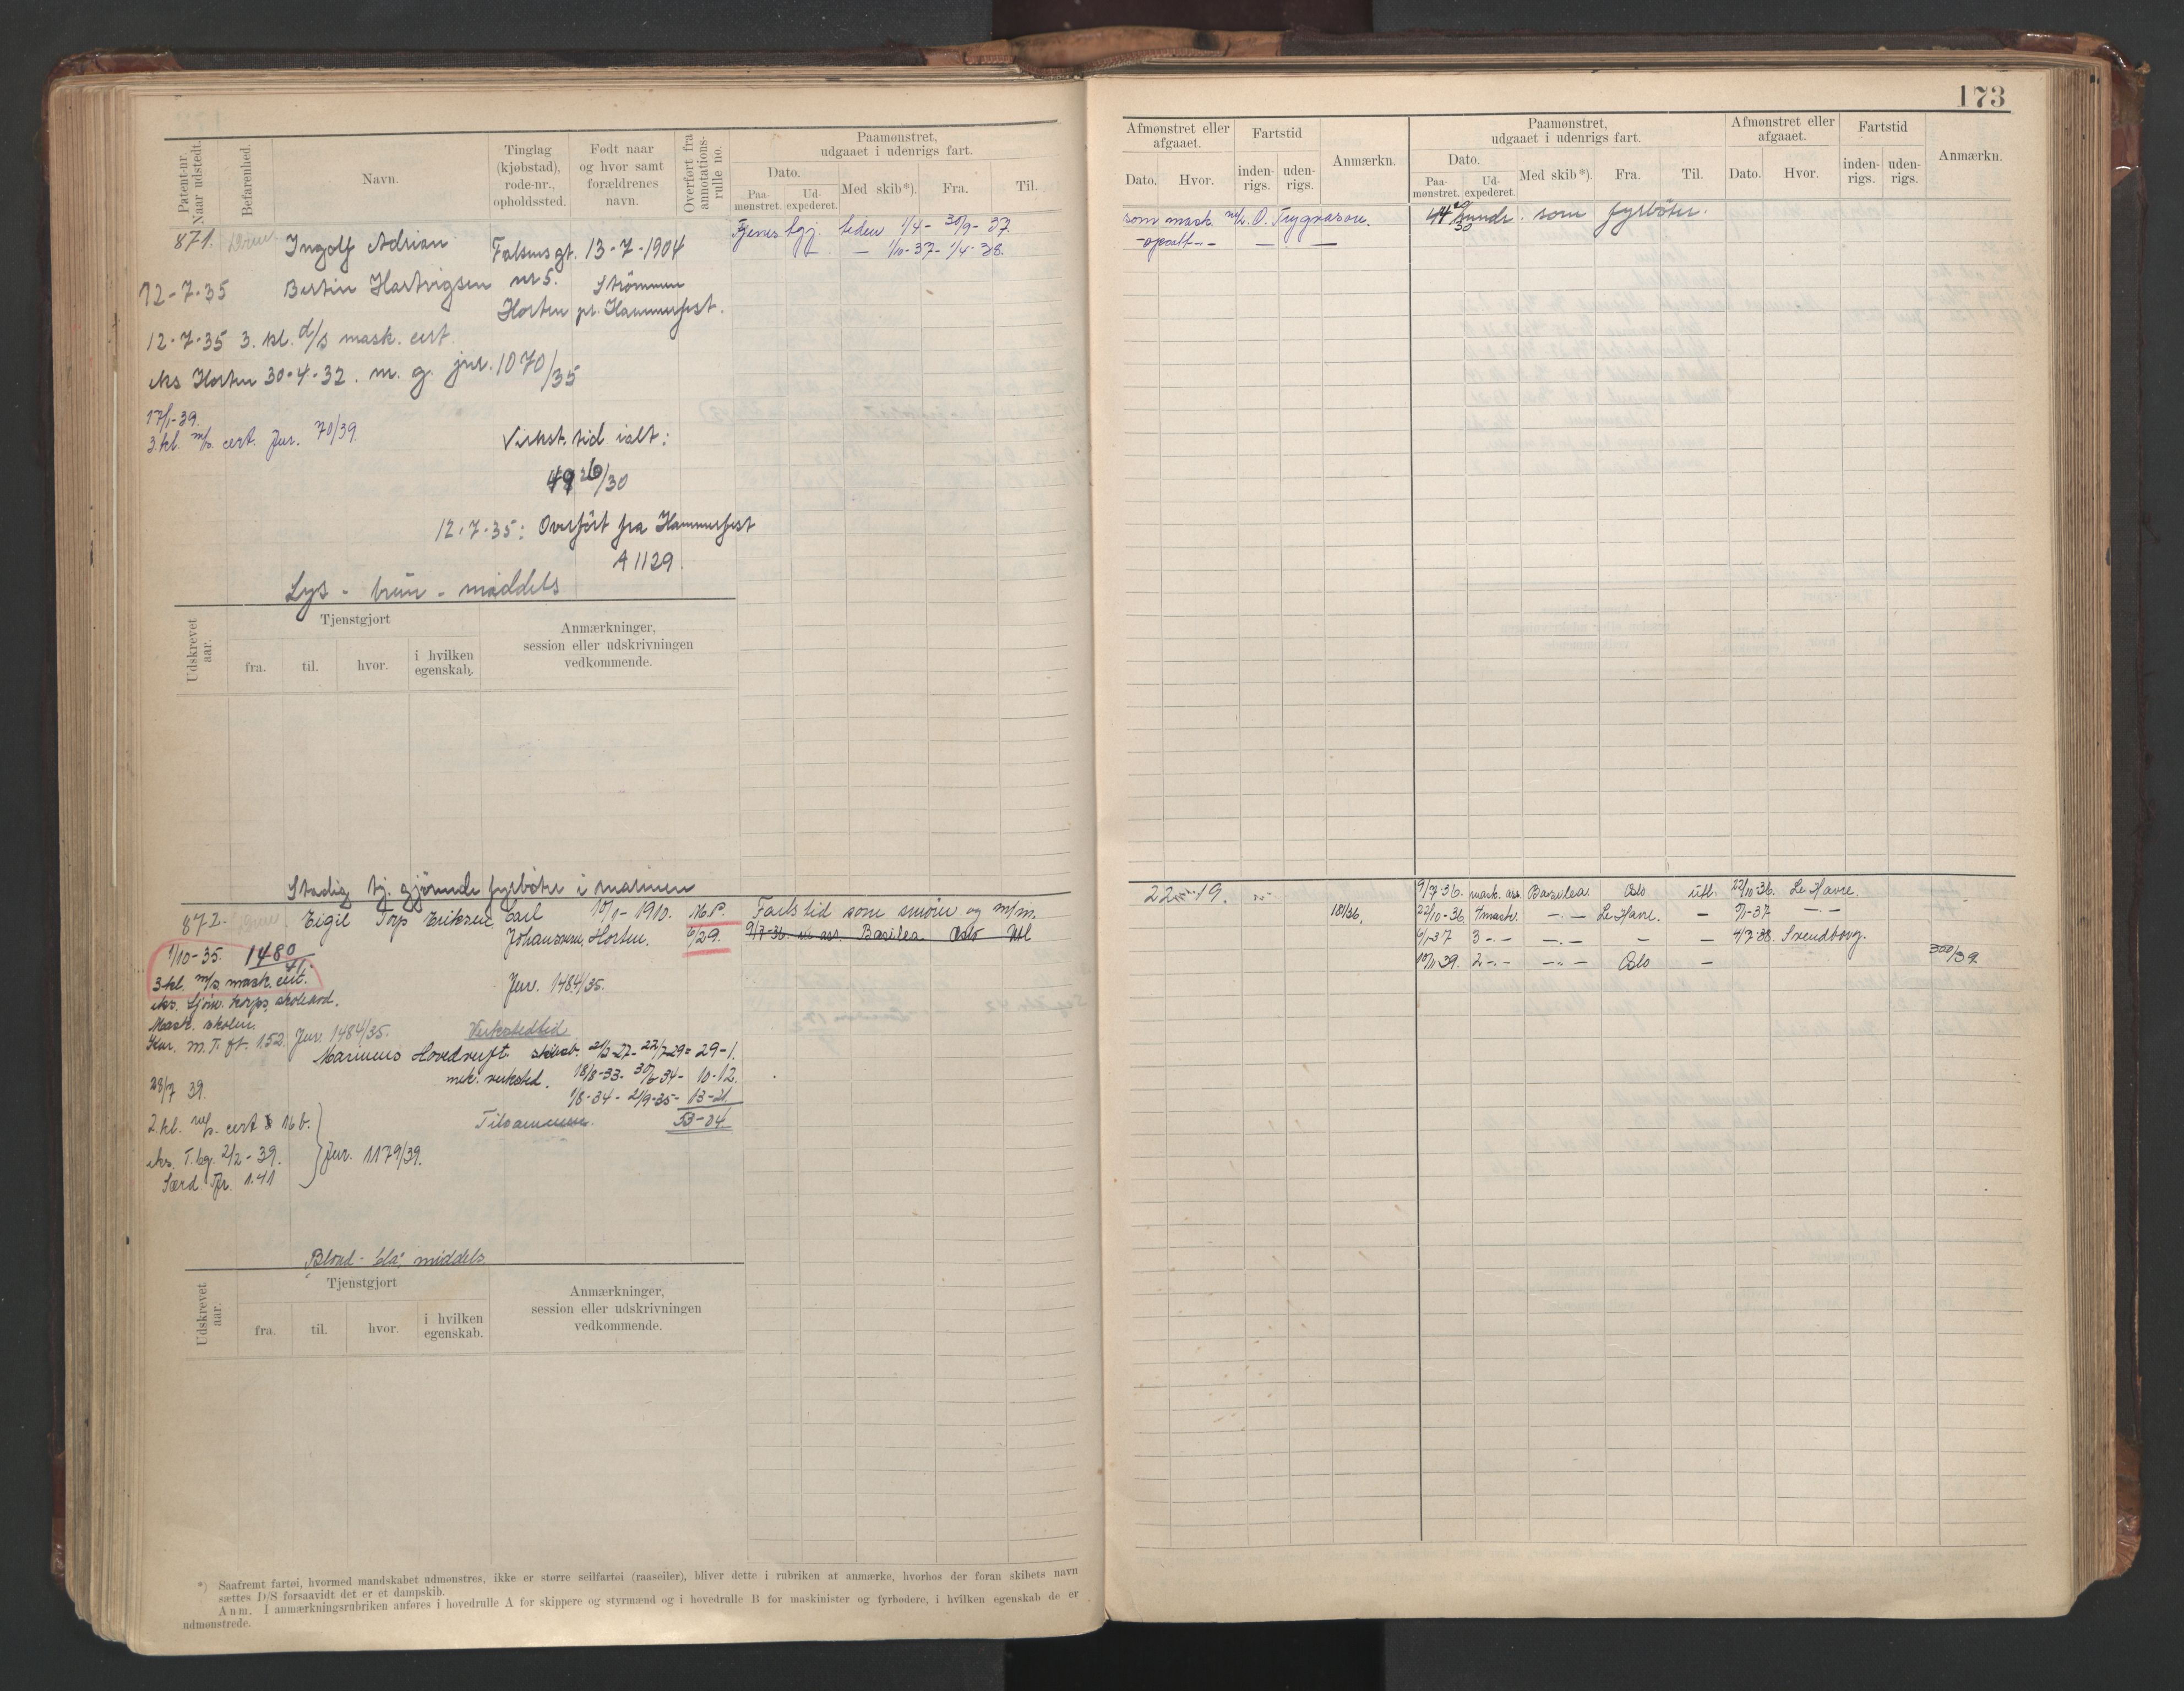 173
Patent-nr. Naar udstedt.
Befarenhed.
Navn.
Tinglag (kjøbstad), rode-nr., opholdssted.
Født naar og hvor samt forældrenes navn.
Overført fra annotations-rulle no.
Paamønstret, udgaaet i udenrigs fart.
Dato.
Paa-mønstret.
Ud-expederet.
Med skib*).
Fra.
Til.
Afmønstret eller afgaaet.
Dato.
Hvor.
Fartstid
inden-rigs.
uden-rigs.
Anmærkn.
Paamønstret, udgaaet i udenrigs fart.
Dato.
Paa-mønstret.
Ud-expederet.
Med skib*).
Fra.
Til.
Afmønstret eller afgaaet.
Dato.
Hvor.
Fartstid
inden-rigs.
uden-rigs.
Anmærkn.
871. Ingolf Adrian Falsensgt. 13-7-1904
12-7-35 Bertin Hartvigsen nr 5. Strömmen
Horten pr. Hammerfest.
12-7-35 3. kl. d/s mask. cert
eks Horten 30-4-32. m. g. jnr. 1070/35
17/1-39.
3. kl. m/s. cert. Jnr. 70/39.
Virkst. tid ialt:
49 26/30
12-7-35: Overfört fra Hammerfest
A 1129.
Lys - brun - middels
Tjenes tgj. tiden 1/4 - 30/9 - 37.
— 1/10-37 - 1/4-38.
som mask. m/k. O. Trygvason.
44 29/30 mndr. som fyrböter.
Udskrevet aar.
Tjenstgjort
fra.
til.
hvor.
i hvilken egenskab.
Anmærkninger, session eller udskrivningen vedkommende.
Stadig tj. gjörende fyrböter i marinen
872. Eigil Torp Eriksen Carl 10/1-1910. M.P.
Johansen, Horten. 6/29.
1/10-35. 1480
3 kl. m/s. mask. cert.
eks. Sjöm. korps, skoleavd.
Mask. skolen.
Kar. M.T. ft. 1.52. Jnr. 1484/35.
Jnr. 1484/35.
Verkstedtid
Marinens Hovedverft skibsb. 21/2-27 - 22/7-29 = 29-1.
mek. verksted. 18/8-33 - 30/6-34 - 10-12.
1/8-34 - 21/9-35 - 13-21
Tilsammen. 53-04.
28/7 39.
2. kl. m/s. cert § 16 b.
eks. T.bg. 2/2-39. Jnr. 1179/39.
Særd. Tfr. 1.41
Blond - blå, middels
Fartstid som smörer og m/m.
9/7-36. m. ass. Basilea Oslo Utl
22 19.
181/36.
9/7 36. mask. ass. Basilea Oslo utl. 22/10-36. Le Havre.
22/10-36. 4 mask. —„— Le Havre. — 5/1-37 —„—
6/1-37 3 —„— —„— — — 4/7-38. Svendborg.
10/11 39. 2 —„— —„— Oslo — 300/39.
Udskrevet aar.
Tjenstgjort
fra.
til.
hvor.
i hvilken egenskab.
Anmærkninger, session eller udskrivningen vedkommende.
*) Saafremt fartøi, hvormed mandskabet udmønstres, ikke er større seilfartøi (raaseiler), bliver dette i rubriken at anmærke, hvorhos der foran skibets navn
sættes D/S forsaavidt det er et dampskib.
Anm. I anmærkningsrubriken anføres i hovedrulle A for skippere og styrmænd og i hovedrulle B for maskinister og fyrbødere, i hvilken egenskab de er
udmønstrede.